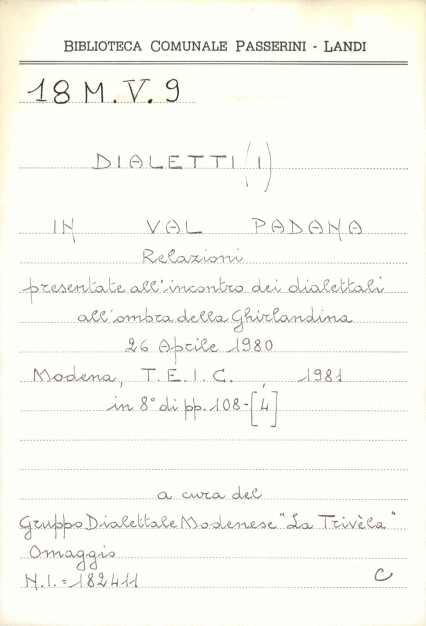 BIBLIOTECA COMUNALE PASSERINI - LANDI
18 M. V. 9
DIALETTI (I)
IN VAL PADANA
Relazioni
presentate all'incontro dei dialettali
all'ombra della Ghirlandina
26 Aprile 1980
Modena, T.E.I.C., 1981
in 8° di pp. 108-[4]
a cura del
Gruppo Dialettale Modenese "La Trivèla"
Omaggio
N.I. = 182411 C